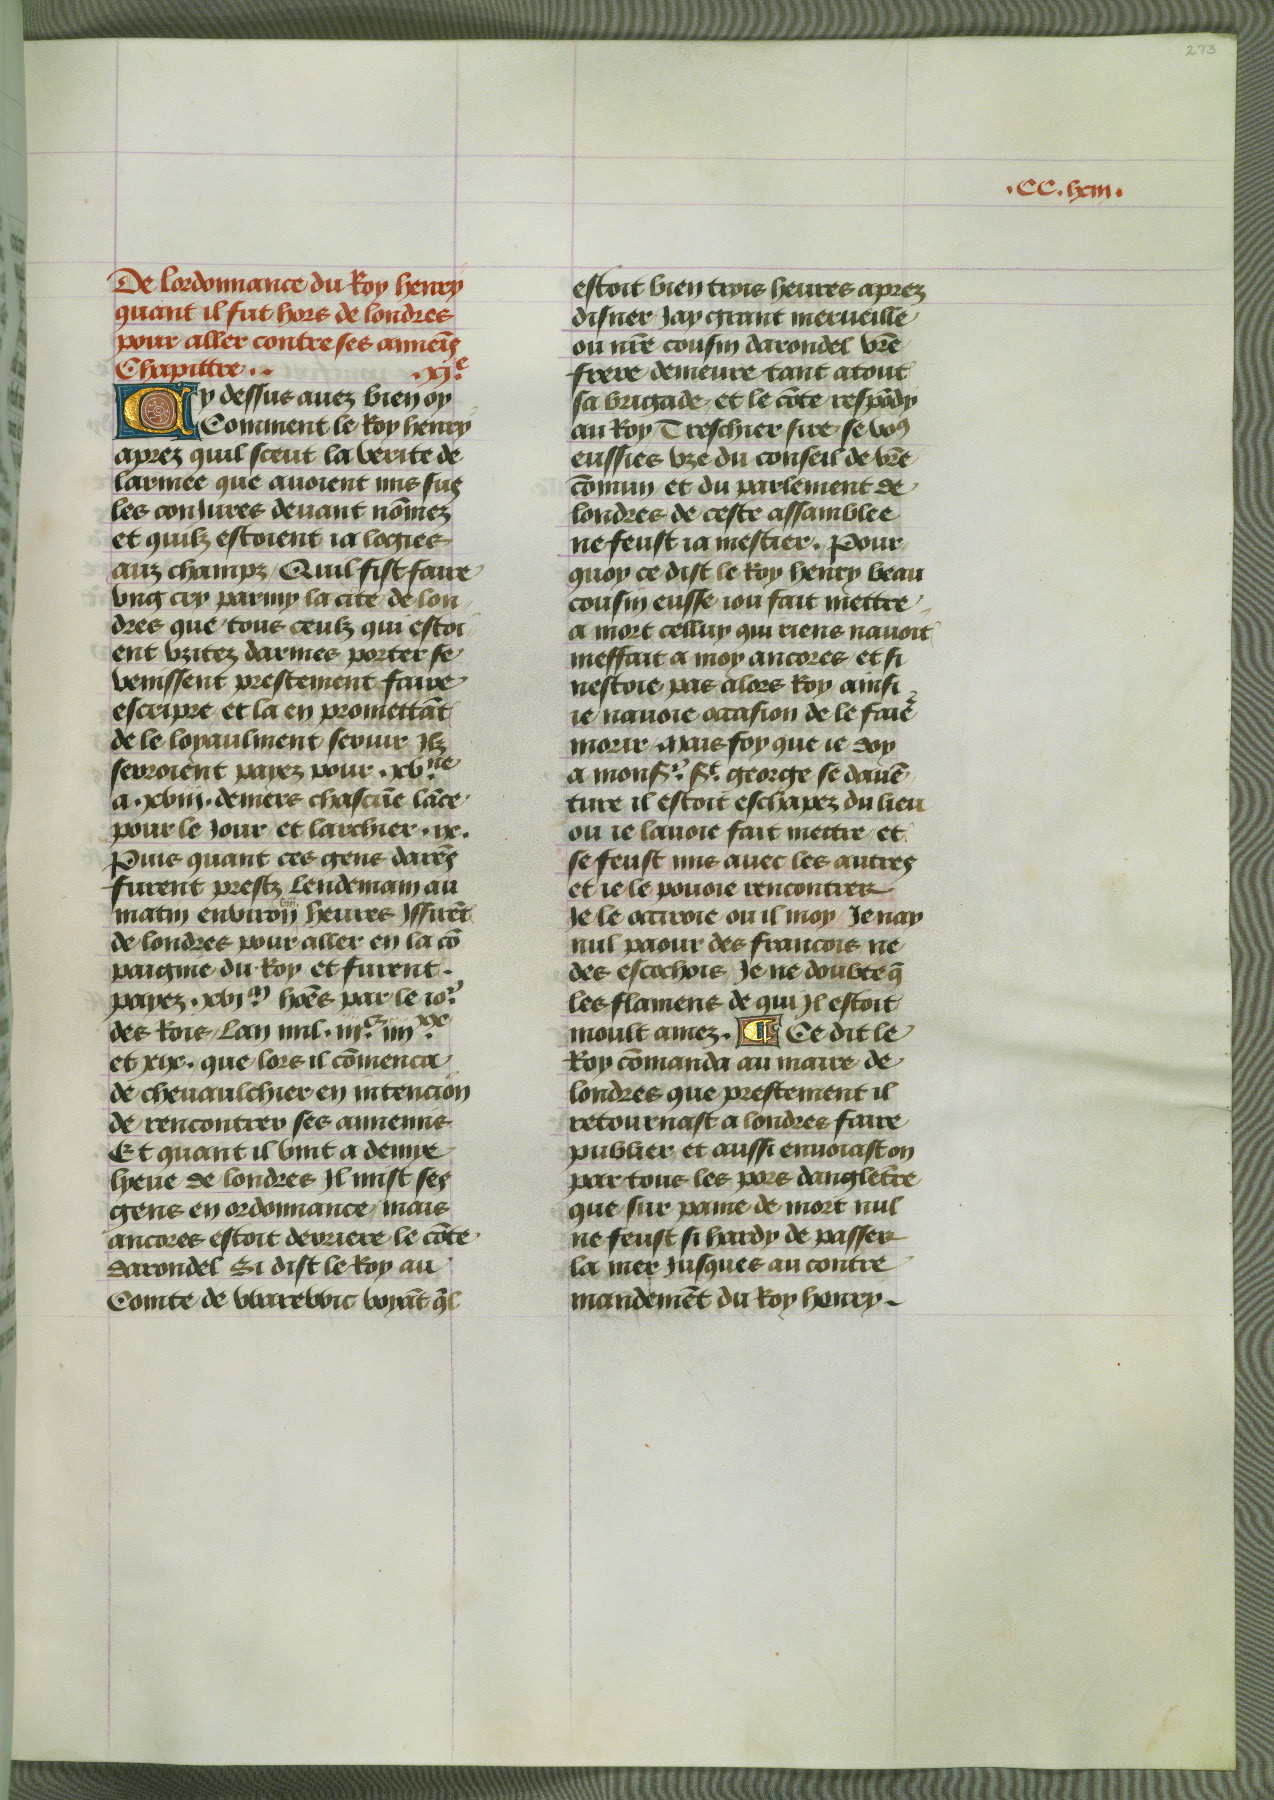 273
.CC.lxiii.
De lordonnance du Roy henry
quant il fut hors de londres
pour aller contre ses annem̄s
Chapittre .. .xj.e
Cy dessus auez bien oy
Comment le Roy henry
aprez quil sceut la verite de
larmee que auoient mis sus
les conJures deuant nōmez
et quilz estoient ia logies
auz champz Quil fist faire
vng cry parmy la cite de lon
dres que tous ceulz qui estoi
ent vzitez darmes porter se
venissent prestement faire
escripre et la en promettāt
de le loyaulment seruir Ilz
seroient payez pour .xv.ne
a .xviii. deniers chascūe lāce
pour le Jour et larchier .ix.
Puis quant ces gens darm̄s
furent prestz Lendemain au
matin enuiron viij heures Issirēt
de londres pour aller en la cō
paignie du Roy et furent .
payez .xvj.m hoēs par le io.r
des Rois Lan mil .iij.c iiij.xx
et xix. que lors il cōmenca
de cheuaulchier en intencion
de rencontrer ses annemis
Et quant il vint a demye
lyeue de londres Il mist ses
gens en ordonnance mais
ancores estoit derriere le cōte
darondel Si dist le Roy au
Comte de vvarevvic voyāt q̄l
estoit bien trois heures aprez
disner Jay grant merueille
ou nr̄e cousin darondel vr̄e
frere demeure tant atout
sa brigade et le cōte respōdy
au Roy Treschier sire se vo9
eussies vze du conseil de vr̄e
cōmun et du parlement de
londres de ceste assamblee
ne feust ia mestier. Pour
quoy ce dist le Roy henry beau
cousin eusse iou fait mettre
a mort celluy qui riens nauoit
meffait a moy ancores et si
nestoie pas alors Roy ainsi
ie nauoie occasion de le faie᷑
morir. Mais foy que ie doy
a mons.r s.t george se dauē
ture il estoit eschapez du lieu
ou ie lauoie fait mettre et
se feust mis auec les autres
et ie le pouoie rencontrer
Je le occiroie ou il moy Je nay
nul paour des francois ne
des escochois Je ne doubte q̄
les flamens de qui Il estoit
moult amez. ¶ Ce dit le
Roy cōmanda au maire de
londres que prestement il
retournast a londres faire
publier et aussi enuoiast on
par tous les pors dangletr̄e
que sur paine de mort nul
ne feust si hardy de passer
la mer Jusques au contre
mandemēt du Roy henry.